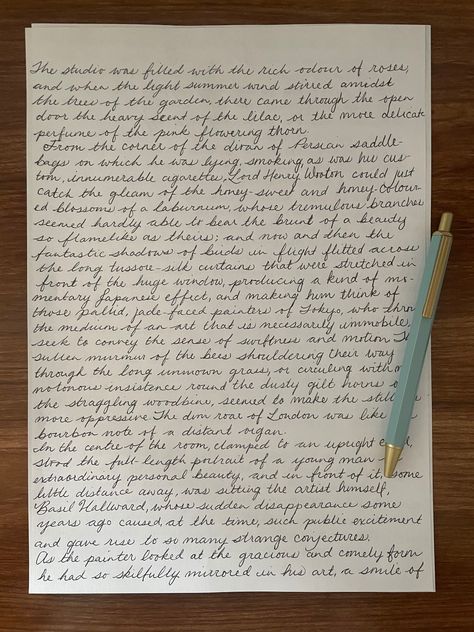 The studio was filled with the rich odour of roses,
and when the light summer wind stirred amidst
the trees of the garden, there came through the open
door the heavy scent of the lilac, or the more delicate
perfume of the pink flowering thorn.
From the corner of the divan of Persian saddle-
bags on which he was lying, smoking, as was his cus-
tom, innumerable cigarettes, Lord Henry Wotton could just
catch the gleam of the honey-sweet and honey-colour-
ed blossoms of a laburnum, whose tremulous branches
seemed hardly able to bear the brunt of a beauty
so flamelike as theirs; and now and then the
fantastic shadows of birds in flight flitted across
the long tussore-silk curtains that were stretched in
front of the huge window, producing a kind of mo-
mentary Japanese effect, and making him think of
those pallid, jade-faced painters of Tokyo, who
the medium of an art that is necessarily immobile,
seek to convey the sense of swiftness and motion.
sullen murmur of the bees shouldering their way
through the long unmown grass, or circling with
notonous insistence round the dusty gilt horns
the straggling woodbine, seemed to make the
more oppressive. The dim roar of London was like
bourbon note of a distant organ.
In the centre of the room, clamped to an upright
stood the full-length portrait of a young man
extraordinary personal beauty, and in front of it, some
little distance away, was sitting the artist himself,
Basil Hallward, whose sudden disappearance some
years ago caused, at the time, such public excitement
and gave rise to so many strange conjectures.
As the painter looked at the gracious and comely form
he had so skilfully mirrored in his art, a smile of